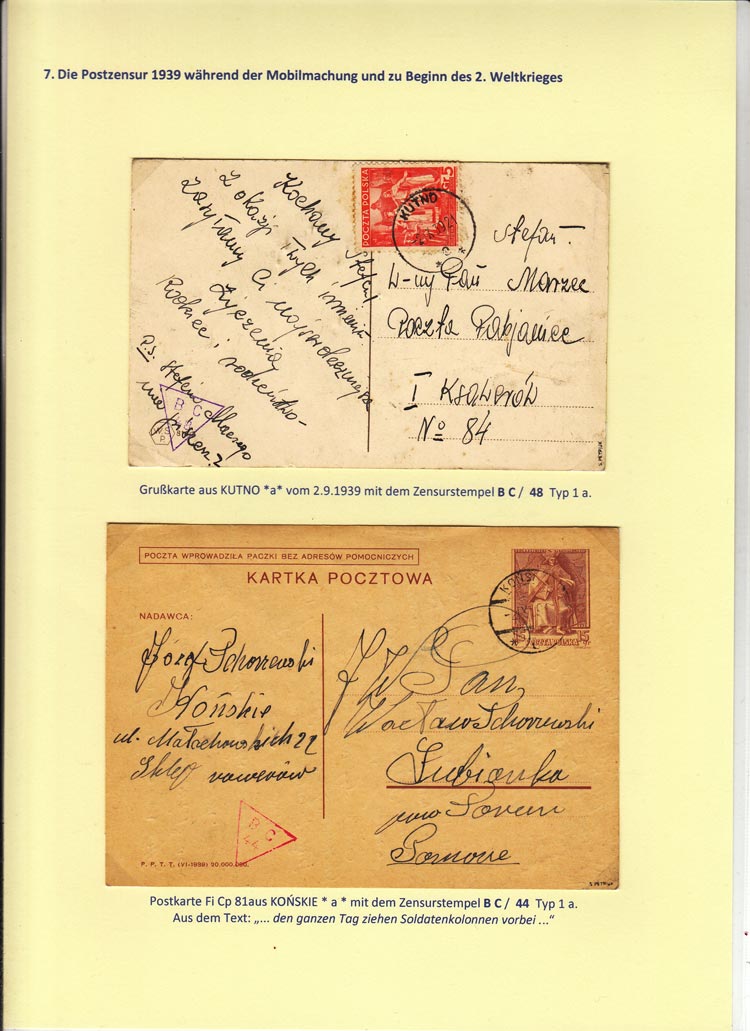 7. Die Postzensur 1939 während der Mobilmachung und zu Beginn des 2. Weltkrieges
Kochany Stefciu
Z okazji Twych imienin
zasyłamy Ci najserdeczniejsze
życzenia
Rodzice i rodzeństwo
P.S. Stefciu
B C
POCZTA POLSKA
GR. 5
KUTNO
Stefan
W-ny Pan Marzec
Poczta Pabjanice
I Ksawerów
No 84
Grußkarte aus KUTNO *a* vom 2.9.1939 mit dem Zensurstempel B C / 48 Typ 1 a.
POCZTA WPROWADZIŁA PACZKI BEZ ADRESÓW POMOCNICZYCH
KARTKA POCZTOWA
NADAWCA:
Józef
Końskie
ul. Małachowskich 22
Sklep rowerów
B C
44
P. P. T. T. (VI-1938) 20.000.000.
KOŃSK
15
POCZTA POLSKA
JW Pan
Wacław
Lubianka
pow Toruń
Pomorze
Postkarte Fi Cp 81aus KOŃSKIE * a * mit dem Zensurstempel B C / 44 Typ 1 a.
Aus dem Text: „... den ganzen Tag ziehen Soldatenkolonnen vorbei ...“